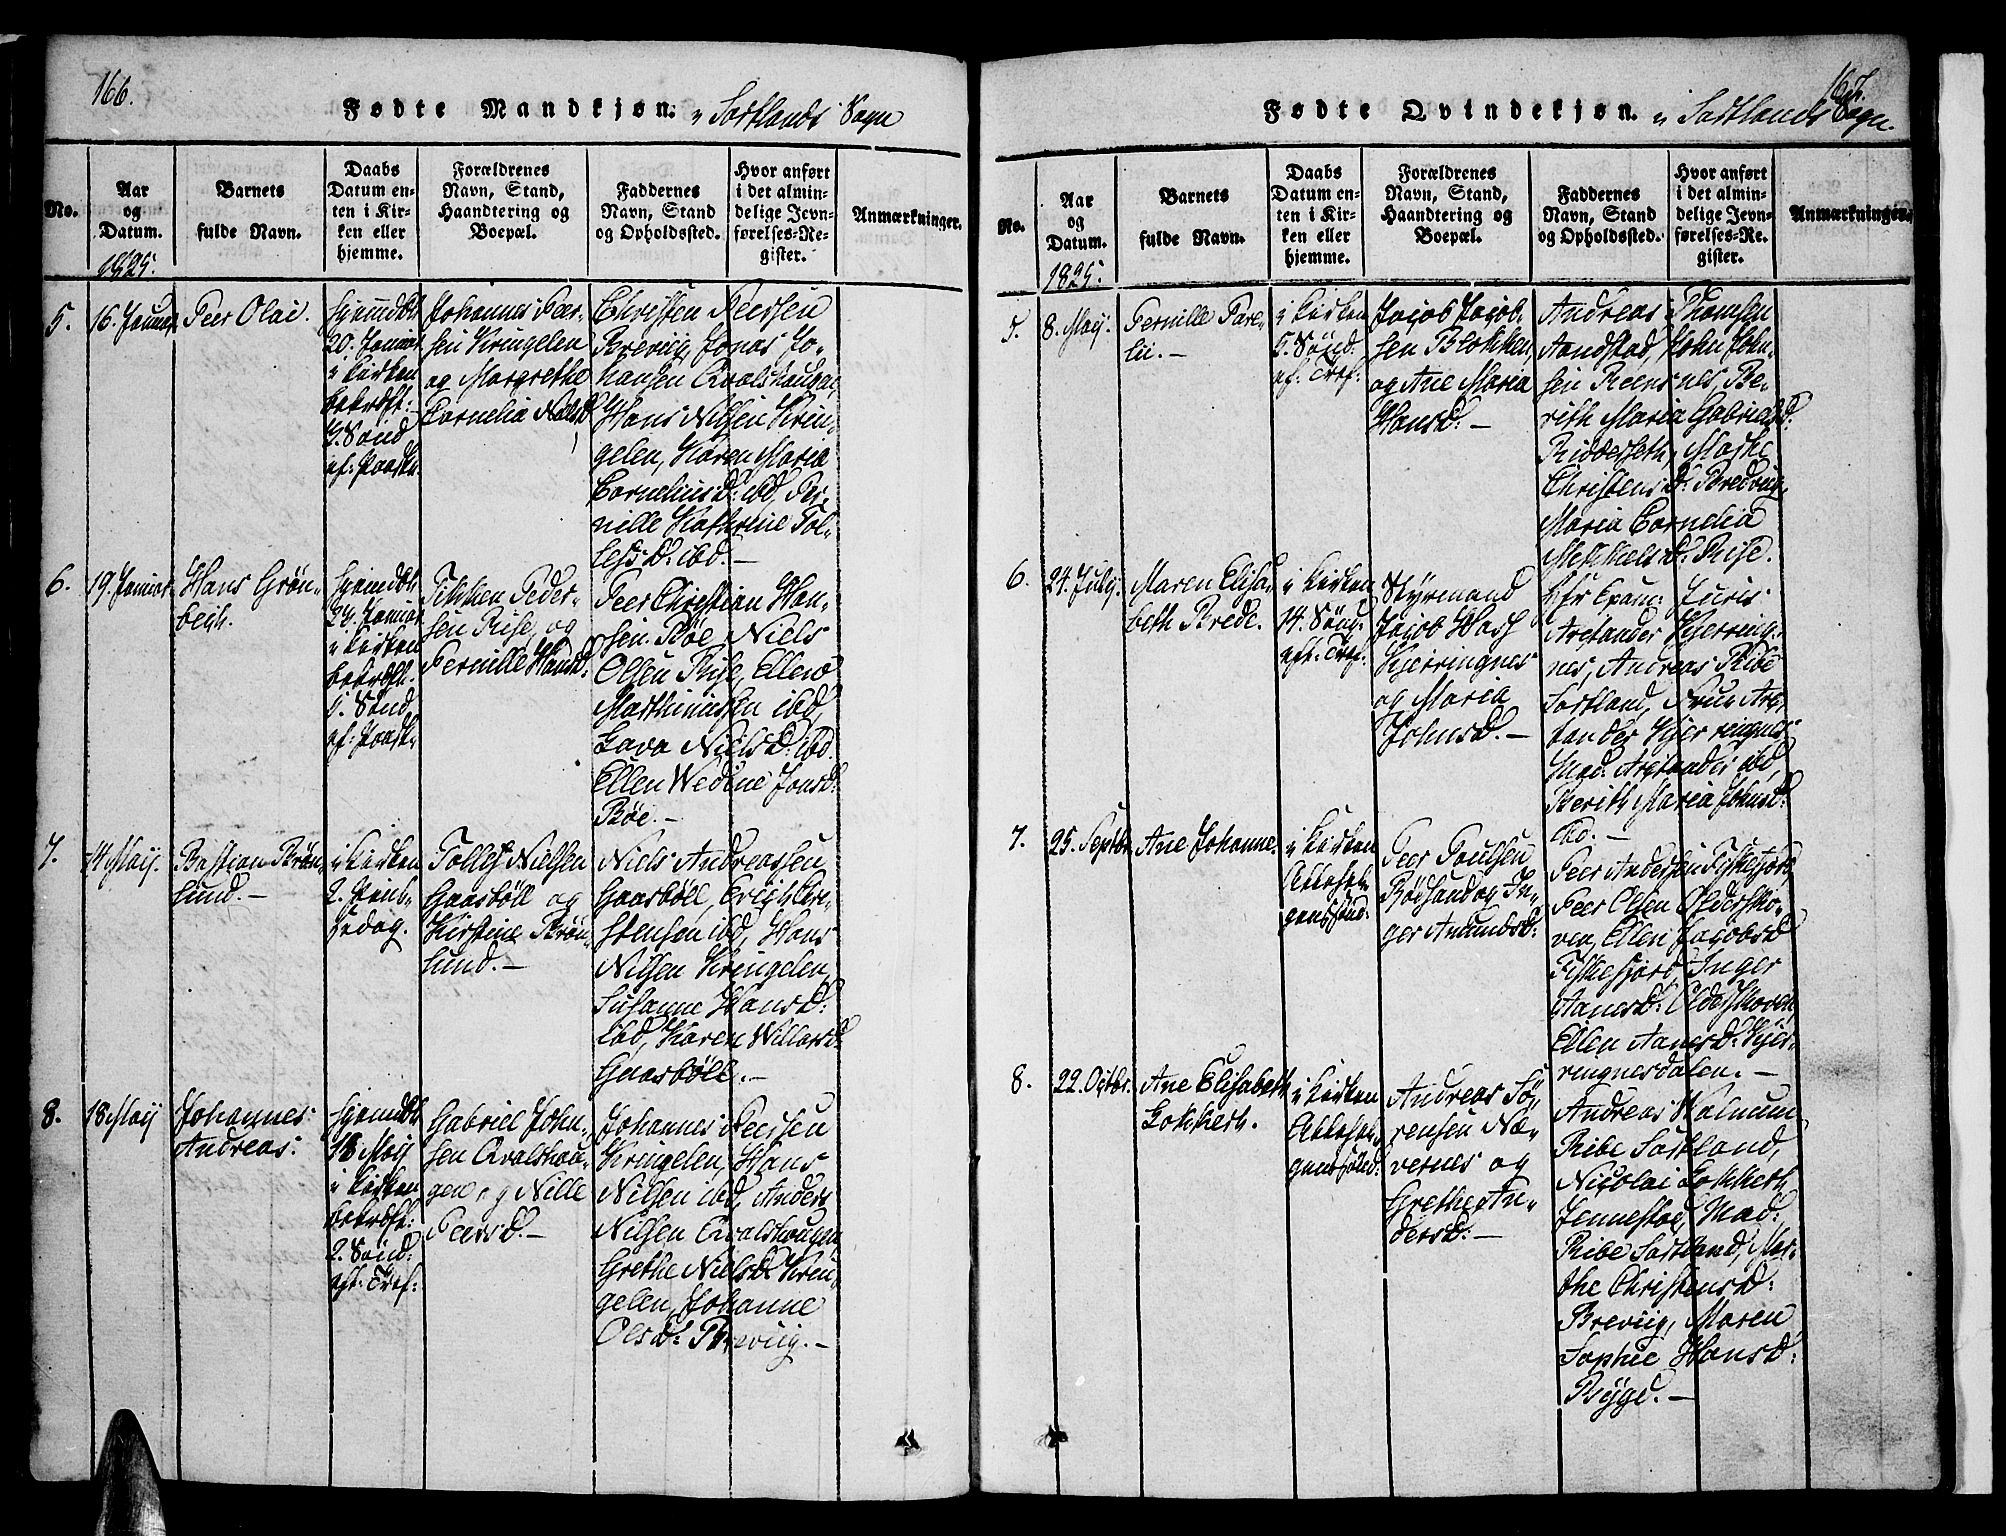 166.
Fødte Mandkjøn. i Sortlands Sogn
No.
Aar
og
Datum.
1825.
Barnets
fulde Navn.
Daabs
Datum en-
ten i Kir-
ken eller
hjemme.
Forældrenes
Navn, Stand,
Haandtering og
Boepæl.
Faddernes
Navn, Stand
og Opholdssted.
Hvor anført
i det almin-
delige Jevn-
førelses-Re-
gister.
Anmærkninger.
5.
16. Januar.
Peer Olai.
hjemdbt
20. Januar
i Kirken
bekræft:
3. Sønd.
ef: Paaske
Johannes Peer-
sen Kringelen
og Margrethe
Cornelia Nielsd.
Christen Peersen
Breviig, Jonas Jo-
hansen Qvalshaugen,
Hans Nilsen Krin-
gelen, Karen Maria
Cornelius D: ibd, Per-
nille Kathrine Tol-
lefs D: ibd. —
6.
19. Januar.
Hans Grøn-
bech.
hjemdbt
24. Januar
i Kirken
bekræft.
5. Sønd.
ef: Paask.
Peder-
sen Rise, og
Pernille Hansd:
Peer Christian Han-
sen Bøe, Niels
Olsen Rise, Ellen
Marthinussen ibd,
Lava Niels D: ibd.
Ellen Wedine Jonsd:
Bøe. —
7.
14 Maij.
Bastian Brøn-
lund. —
i Kirken
2. Pinb-
sedag.
Tollef Nielsen
Gaasbøll og
Kirstine Brøn-
lund. —
Niels Andreassen
Gaasbøll, Erich Cri-
stensen ibd, Hans
Nilsen Kringelen,
Susanne Hansd:
ibd, Karen Willarsd:
Gaasbøll. —
8.
18 Maij
Johannes
Andreas:
hjemdbt
18 Maij
i Kirken
bekræft:
2. Sønd:
eft: Tref:
Gabriel John-
sen Qvalshau-
gen og Nille
Peersd. —
Johannes Peersen
Kringelen, Hans
Nilsen ibd, Anders
Nilsen Qvalshaugen,
Grethe Nielsd Krin-
gelen, Johanne
Olsd: Breviig. —
167.
Fødte Qvindekjøn. i Sortlands Sogn.
No.
Aar
og
Datum.
1825.
Barnets
fulde Navn.
Daabs
Datum en-
ten i Kir-
ken eller
hjemme.
Forældrenes
Navn, Stand,
Haandtering og
Boepæl.
Faddernes
Navn, Stand
og Opholdssted.
Hvor anført
i det almin-
delige Jevn-
førelses-Re-
gister.
Anmærkninger.
5.
8. Maij.
Pernille Pare-
lii. —
i Kirken
5. Sønd.
ef: Tref:
Jacob Jacob-
sen Blokken
og Ane Maria
Hansd: —
Andreas Thomsen
Aandstad, John John-
sen Reensnes, Be-
rith Maria Gabrielsd:
Ridderseth,
Christens D: Bredvig,
Maria Cornelia
Mekkels D: Rise.
6.
24. Julij.
Maren Elisa-
beth Brede.
i Kirken
14. Sønd.
eft: Tref:
Styrmand
Jacob
Kjerringnes
og Maria
Johnsd. —
Hr Exam: Juris:
Arctander Kjerring-
nes, Andreas Ribe
Sortland, Frue Arc-
tander Kjerringnes,
Mad: Arctander ibd,
Berith Maria Johnsd:
ibd. —
7.
25. Septbr.
Ane Johanne.
i Kirken
Allehel-
gensSønd:
Peer Poulsen
Rødsand og In-
ger Amundsd:
Peer Andersen Fiskefjord,
Peer Olsen Oldersko-
ven, Ellen Jacobsd
Fiskefjord, Inger
Aanesd: Olderskoven,
Ellen Aanesd: Kjer-
ringnesdalen. —
8.
22. Octbr.
Ane Elisabeth
Lokkert.
i Kirken
Allehel-
gensSønd:
Andreas Sø-
rensen Næ-
vernes og
Grethe An-
dersd: —
Andreas Walnum
Ribe Sortland,
Nicolai Lokkert
Jennestad, Mad:
Ribe Sortland, Mar-
the Christensd:
Breviig, Maren
Sophie Hansd:
Bygd. —